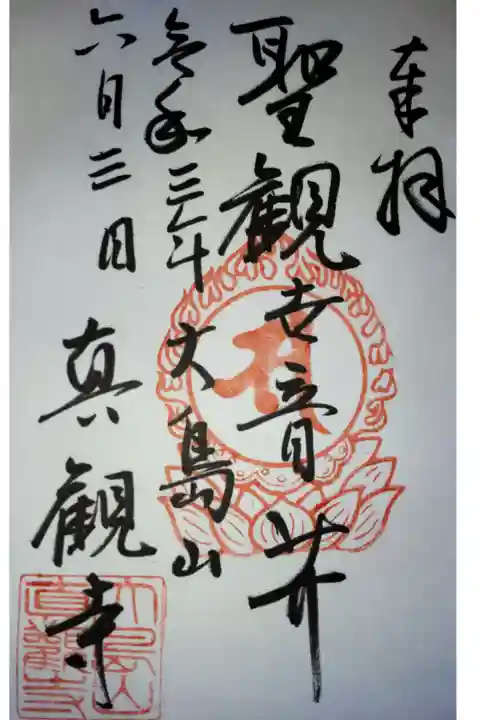 奉拝
聖観世音䒑
令和三年 大島山
六月三日 真観寺
大島山
真観寺